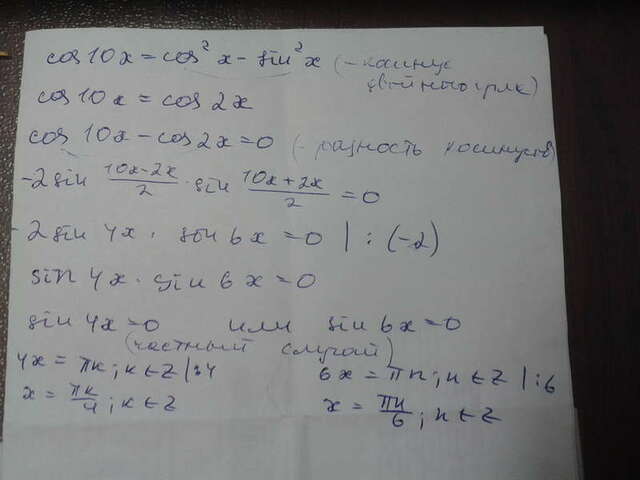 cos 10x = cos²x - sin²x (- косинус
двойного угла)
cos 10x = cos 2x
cos 10x - cos 2x = 0 (- разность косинусов)
-2 sin (10x-2x)/2 · sin (10x+2x)/2 = 0
-2 sin 4x · sin 6x = 0 | : (-2)
sin 4x · sin 6x = 0
sin 4x = 0 или sin 6x = 0
(частный случай)
4x = πk; k ∈ Z | :4 6x = πn; n ∈ Z | :6
x = πk/4; k ∈ Z x = πn/6; n ∈ Z